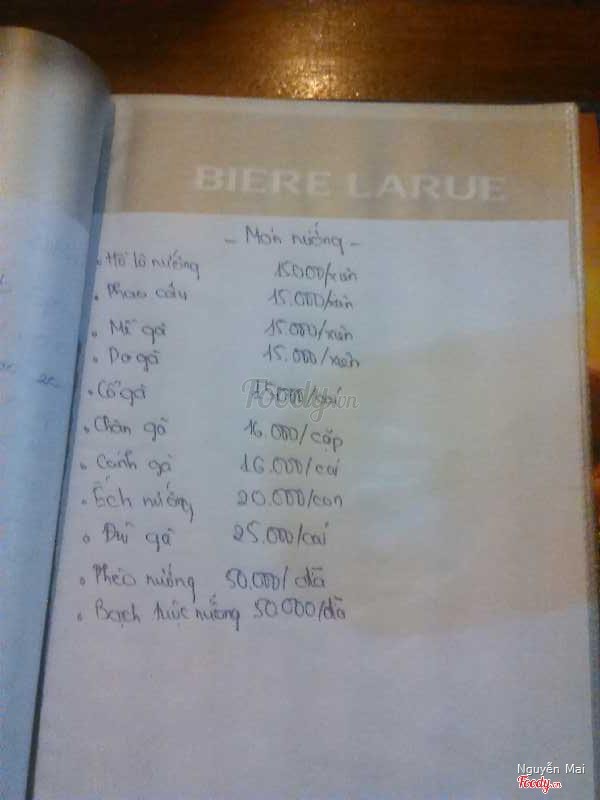 BIERE LARUE
- Món nướng -
. Hồ lô nướng 15.000/xiên
. Phao câu 15.000/xiên
. Mề gà 15.000/xiên
. Da gà 15.000/xiên
. Cổ gà 15.000/cái
. Chân gà 16.000/cặp
. Cánh gà 16.000/cái
. Ếch nướng 20.000/con
. Đùi gà 25.000/cái
. Phèo nướng 50.000/dĩa
. Bạch tuộc nướng 50.000/dĩa
Foody.vn
Nguyễn Mai
Foody.vn